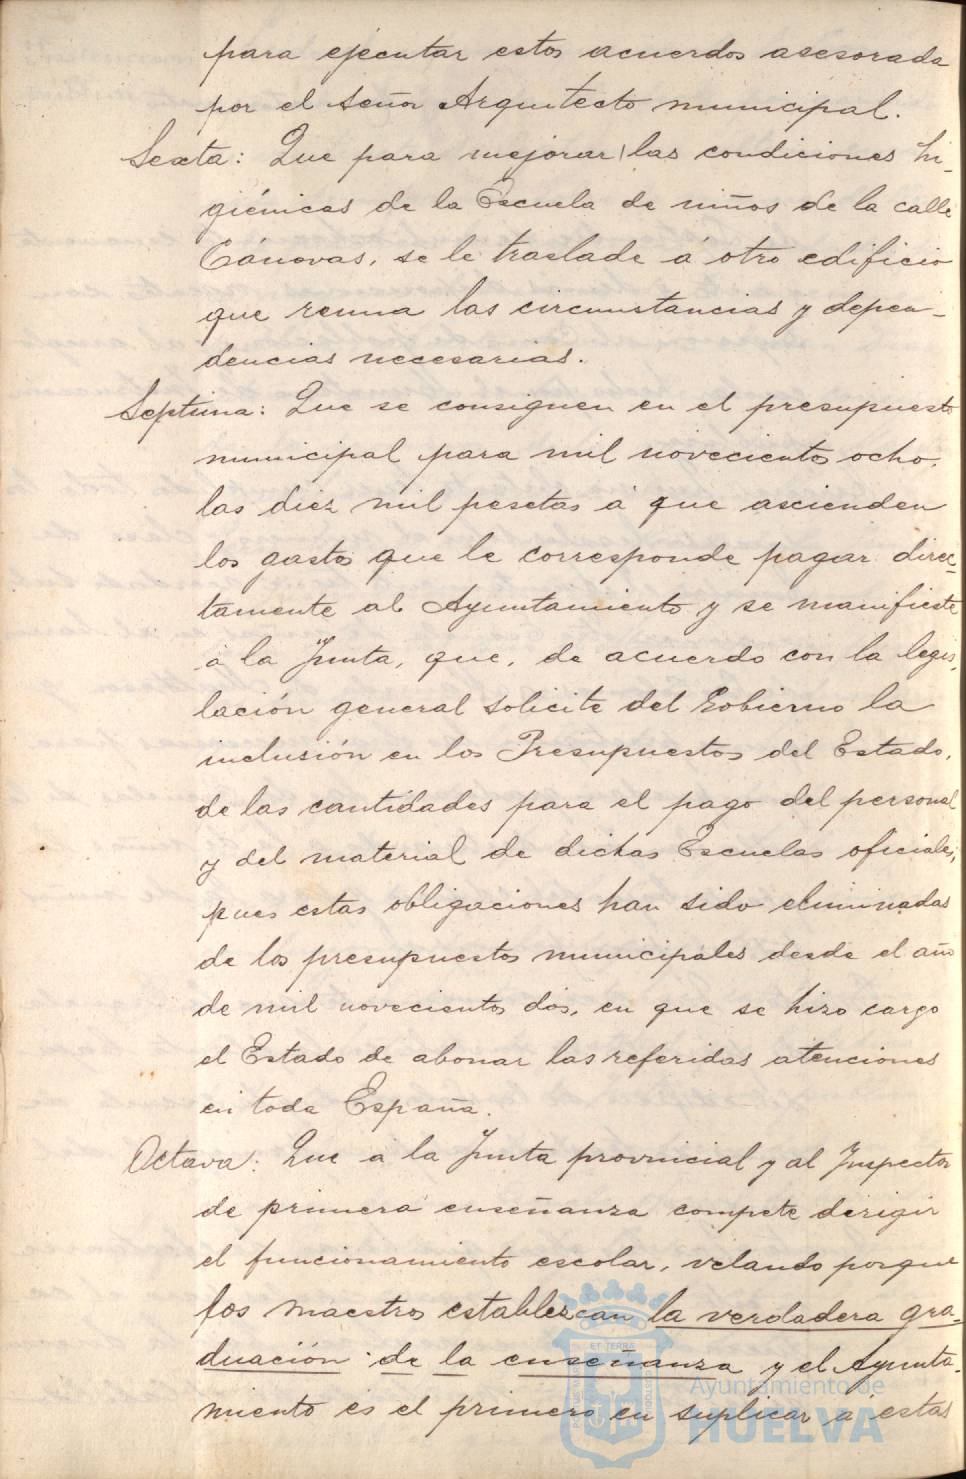 para ejecutar estos acuerdos asesorada
por el señor Arquitecto municipal.
Sexta: Que para mejorar las condiciones hi-
giénicas de la Escuela de niños de la calle
Cánovas, se le traslade á otro edificio
que reuna las circunstancias y depen-
dencias necesarias.
Septima: Que se consignen en el presupuesto
municipal para mil novecientos ocho,
las diez mil pesetas á que ascienden
los gastos que le corresponde pagar direc-
tamente al Ayuntamiento y se manifieste
á la Junta, que, de acuerdo con la legis-
lación general solicite del Gobierno la
inclusión en los Presupuestos del Estado,
de las cantidades para el pago del personal
y del material de dichas Escuelas oficiales,
pues estas obligaciones han sido eliminadas
de los presupuestos municipales desde el año
de mil novecientos dos, en que se hizo cargo
el Estado de abonar las referidas atenciones
en toda España.
Octava: Que á la Junta provincial y al Inspector
de primera enseñanza compete dirigir
el funcionamiento escolar, velando porque
los maestros establezcan la verdadera gra-
duación de la enseñanza y el Ayunta-
miento es el primero en suplicar á estas
ET TERRA
Ayuntamiento de
HUELVA